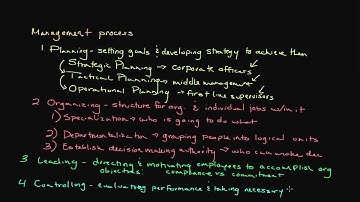 Management process
1 Planning - setting goals & developing strategy to achieve them
Strategic Planning → corporate officers
Tactical Planning → middle management
Operational Planning → first line supervisors
2 Organizing - structure for org. & individual jobs w/in it
1) Specialization → who is going to do what
2) Departmentalization → grouping people into logical units
3) Establish decision making authority → who can make dec
3 Leading - directing & motivating employees to accomplish org
objectives: compliance vs commitment
4 Controlling - evaluating performance & taking necessary